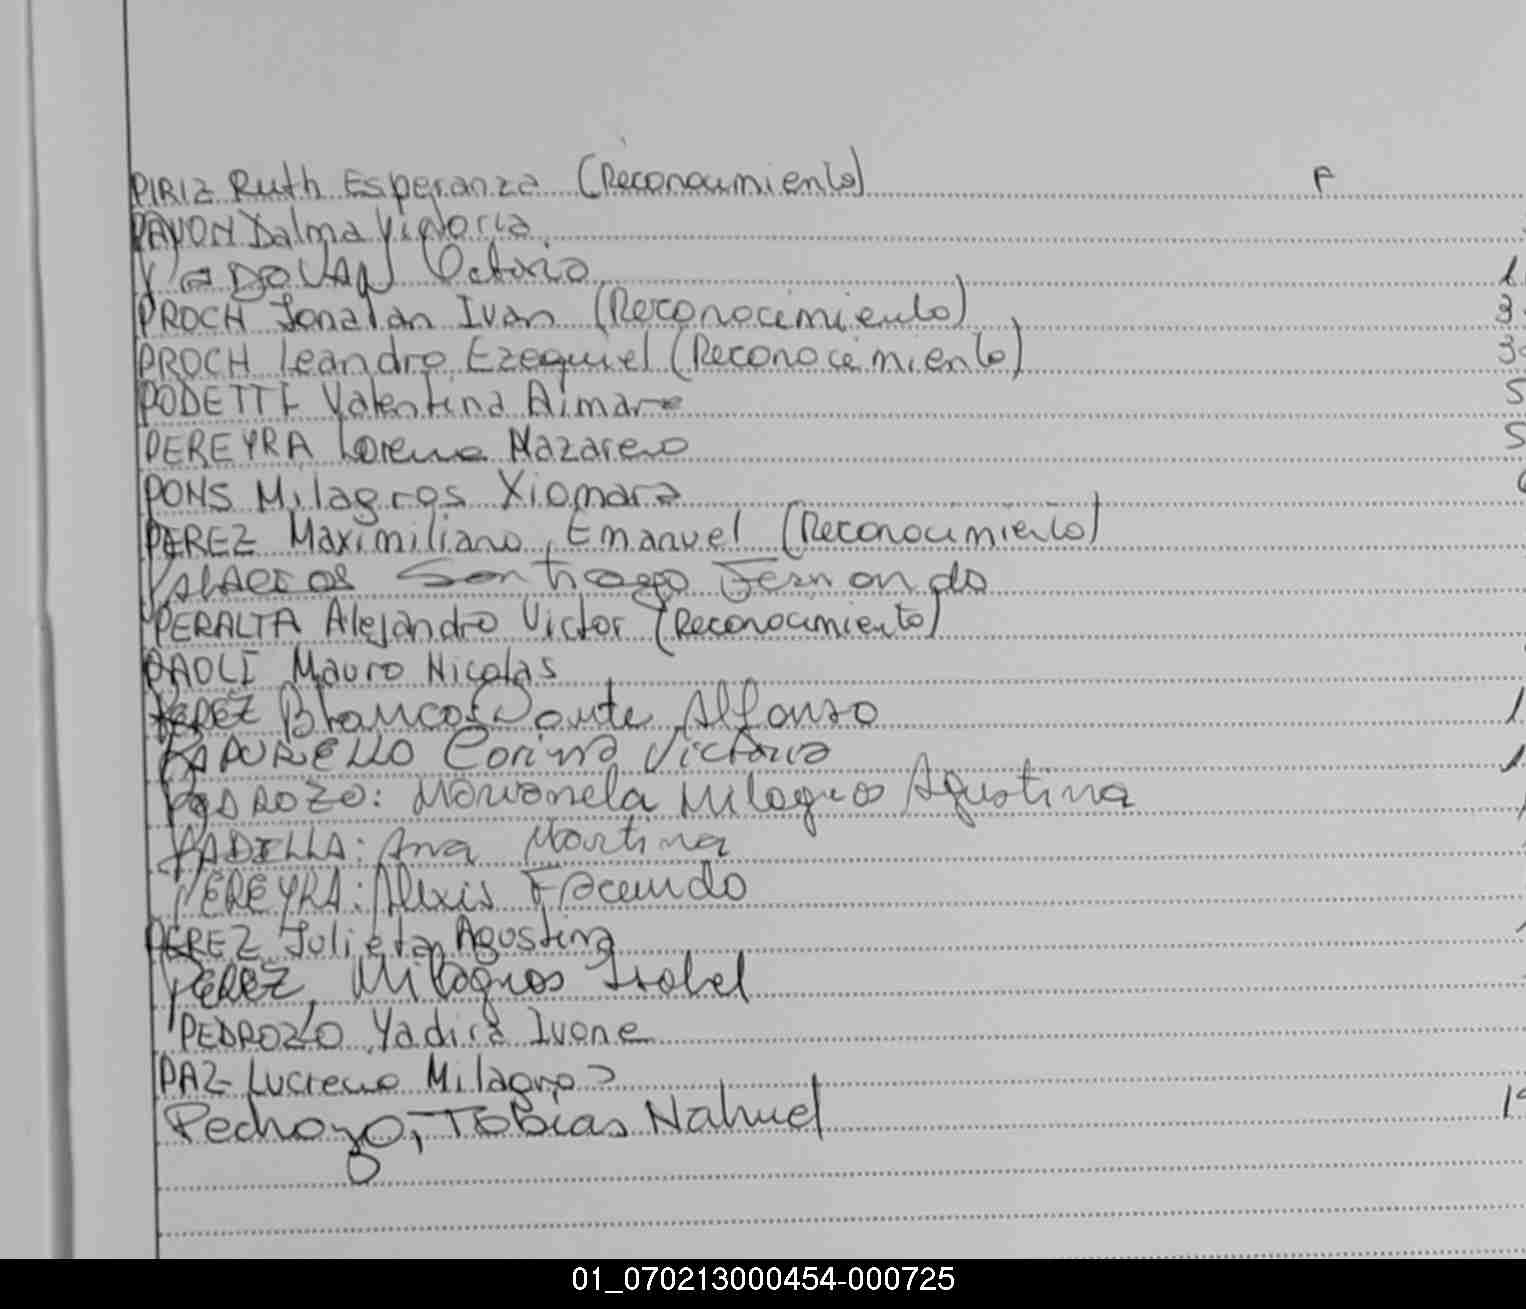 PIRIZ Ruth Esperanza (Reconocimiento) F
PAVON Dalma Victoria
Octavio 1
PROCH Jonatan Ivan (Reconocimiento) 3
PROCH Leandro Ezequiel (Reconocimiento) 3
PODETTI Valentina Aimara 5
PEREYRA Lorena Nazareno 5
PONS Milagros Xiomara
PEREZ Maximiliano Emanuel (Reconocimiento)
PALACIOS Santiago Fernando
PERALTA Alejandro Victor (Reconocimiento)
PAOLI Mauro Nicolas
PEREZ Blancos Dante Alfonso 1
Corina Victoria 1
PEDROZO: Marianela Milagros Agustina
PADILLA: Ana Martina
PEREYRA: Alexis Facundo
PEREZ Julieta Agustina
PEREZ, Milagros Isabel
PEDROZO Yadira Ivone
PAZ Luciana Milagros
Pedrozo, Tobias Nahuel
01_070213000454-000725